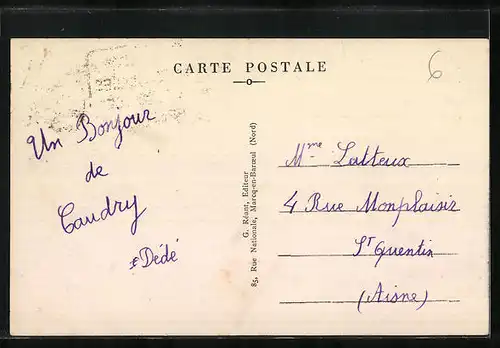 CARTE POSTALE
6
Un Bonjour
de
Caudry
Dédé
G. Réant, Editeur
85, Rue Nationale, Marcq-en-Barœul (Nord)
Mme Latteux
4 Rue Monplaisir
St Quentin
(Aisne)